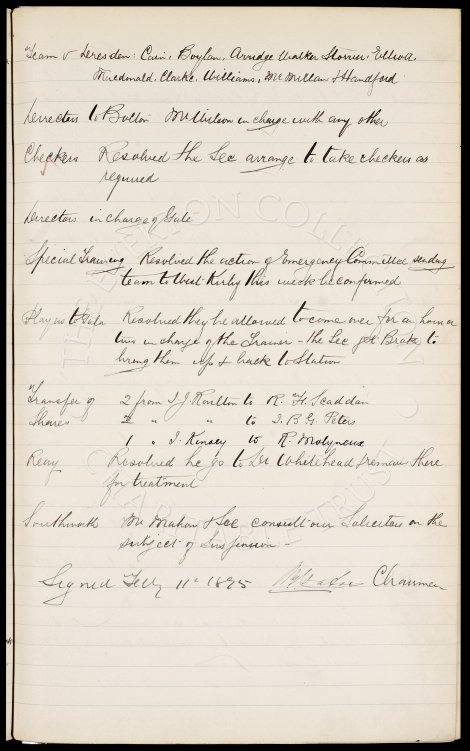 Team v Dresden: Cain, Boylan, Arridge Walker Storrier Elliott
Macdonald, Clarke, Williams, McMillan & Handford
Directors to Bolton Mr Wilson in charge with any other
Checkers Resolved the Sec arrange to take checkers as
required
Directors in charge of Gate
Special Training Resolved the action of Emergency Committee sending
team to West Kirby this week be confirmed
Players to Gala Resolved they be allowed to come over for an hour or
two in charge of the Trainer - the Sec get Brake to
bring them up & back to Station
Transfer of 2 from J J Roulton to R. H. Scaddan
Shares 2 " " to J. B. G. Peters
1 " J. Kinsey to R. Molyneux
Reay Resolved he go to Dr Whitehead & remain there
for treatment
Southworth Mr Mahon & Sec consult our Solicitors on the
subject of Suspension -
Signed Feby 11th 1895 Chairman
THE EVERTON COLLECTION
CHARITABLE TRUST